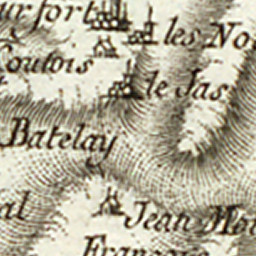 urfort
les No
Coutois
le Jas
Batelay
al
Jean